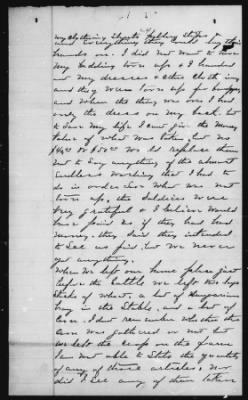 my clothing Sheets & Bedding Strips for
and everything they could lay their
hands on. I did not want to have
my bedding torn up & I handed
out my dresses & other clothing
and they were torn up for bandages
and when the thing was over I had
only the dress on my back. but
to Save my life I can't give the money
value of what was taken, but no
would replace them
not to Say anything of the almost
Endless washing that I had to
do in order Save what was not
torn up. the Soldiers were
very grateful & I believe would
have paid us if they had had
money. they Said they intended
to See us paid, but we never
got anything.
When we left our home place just
before the battle we left two large
Stacks of wheat, a lot of Hungarian
hay in the Stable, and a lot of
Corn. I dont remember whether the
Corn was gathered or not but
we left the crop on the farm
I am not able to State the quantity
of any of those articles, nor
did I See any of them taken